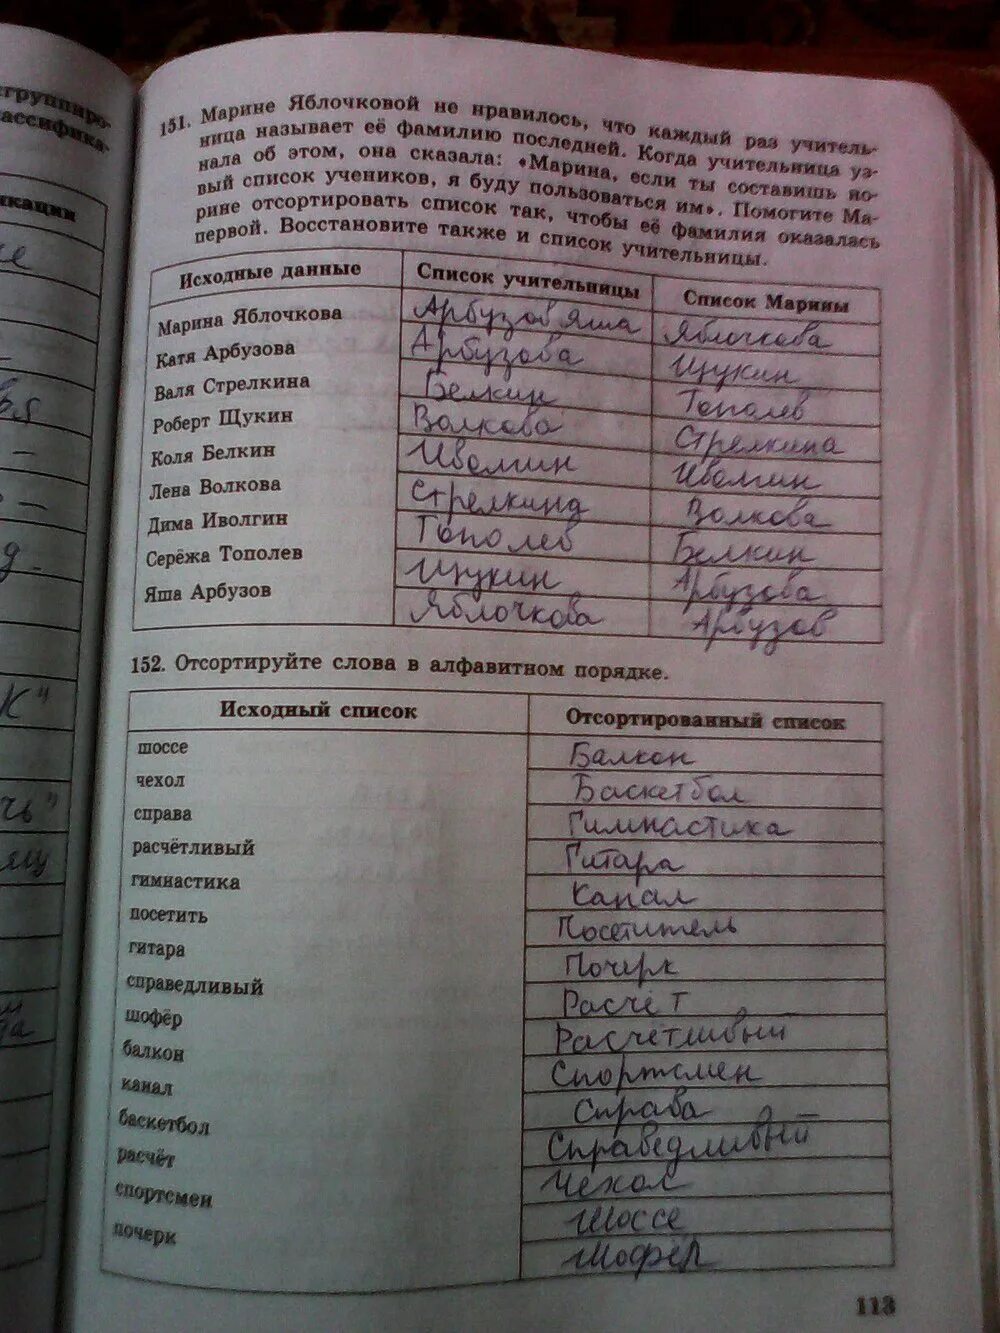 группиро-
лассифика-
икации
151. Марине Яблочковой не нравилось, что каждый раз учитель-
ница называет её фамилию последней. Когда учительница уз-
нала об этом, она сказала: «Марина, если ты составишь но-
вый список учеников, я буду пользоваться им». Помогите Ма-
рине отсортировать список так, чтобы её фамилия оказалась
первой. Восстановите также и список учительницы.
Исходные данные Список учительницы Список Марины
Марина Яблочкова Арбузов Яша Яблочкова
Катя Арбузова Арбузова Щукин
Валя Стрелкина Белкин Тополев
Роберт Щукин Волкова Стрелкина
Коля Белкин Иволгин Иволгин
Лена Волкова Стрелкина Волкова
Дима Иволгин Тополев Белкин
Серёжа Тополев Щукин Арбузова
Яша Арбузов Яблочкова Арбузов
152. Отсортируйте слова в алфавитном порядке.
Исходный список Отсортированный список
шоссе Балкон
чехол Баскетбол
справа Гимнастика
расчётливый Гитара
гимнастика Канал
посетить Посетитель
гитара Почерк
справедливый Расчёт
шофёр Расчётливый
балкон Спортсмен
канал Справа
баскетбол Справедливый
расчёт Чехол
спортсмен Шоссе
почерк Шофёр
113